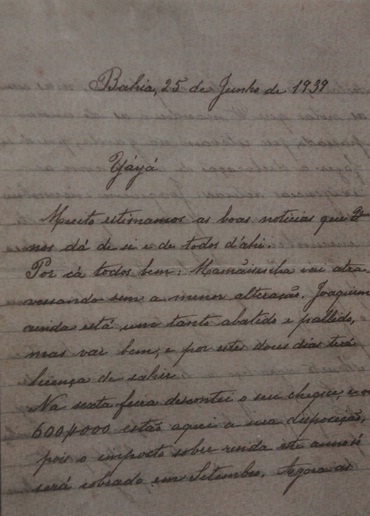 Bahia, 25 de Junho de 1939
Yáyá
Muito estimamos as boas notícias que
nos dá de si e de todos d'ahi.
Por cá todos bem: Mamãisinha vai atra
vessando sem a menor alteração. Joaquim
ainda está um tanto abatido e pallido,
mas vai bem, e por estes dous dias terá
licença de sahir.
Na sexta feira descontei o seu cheque, e os
600$000 estão aqui a sua disposição,
pois o imposto sobre renda este anno só
será cobrado em Setembro. Agora